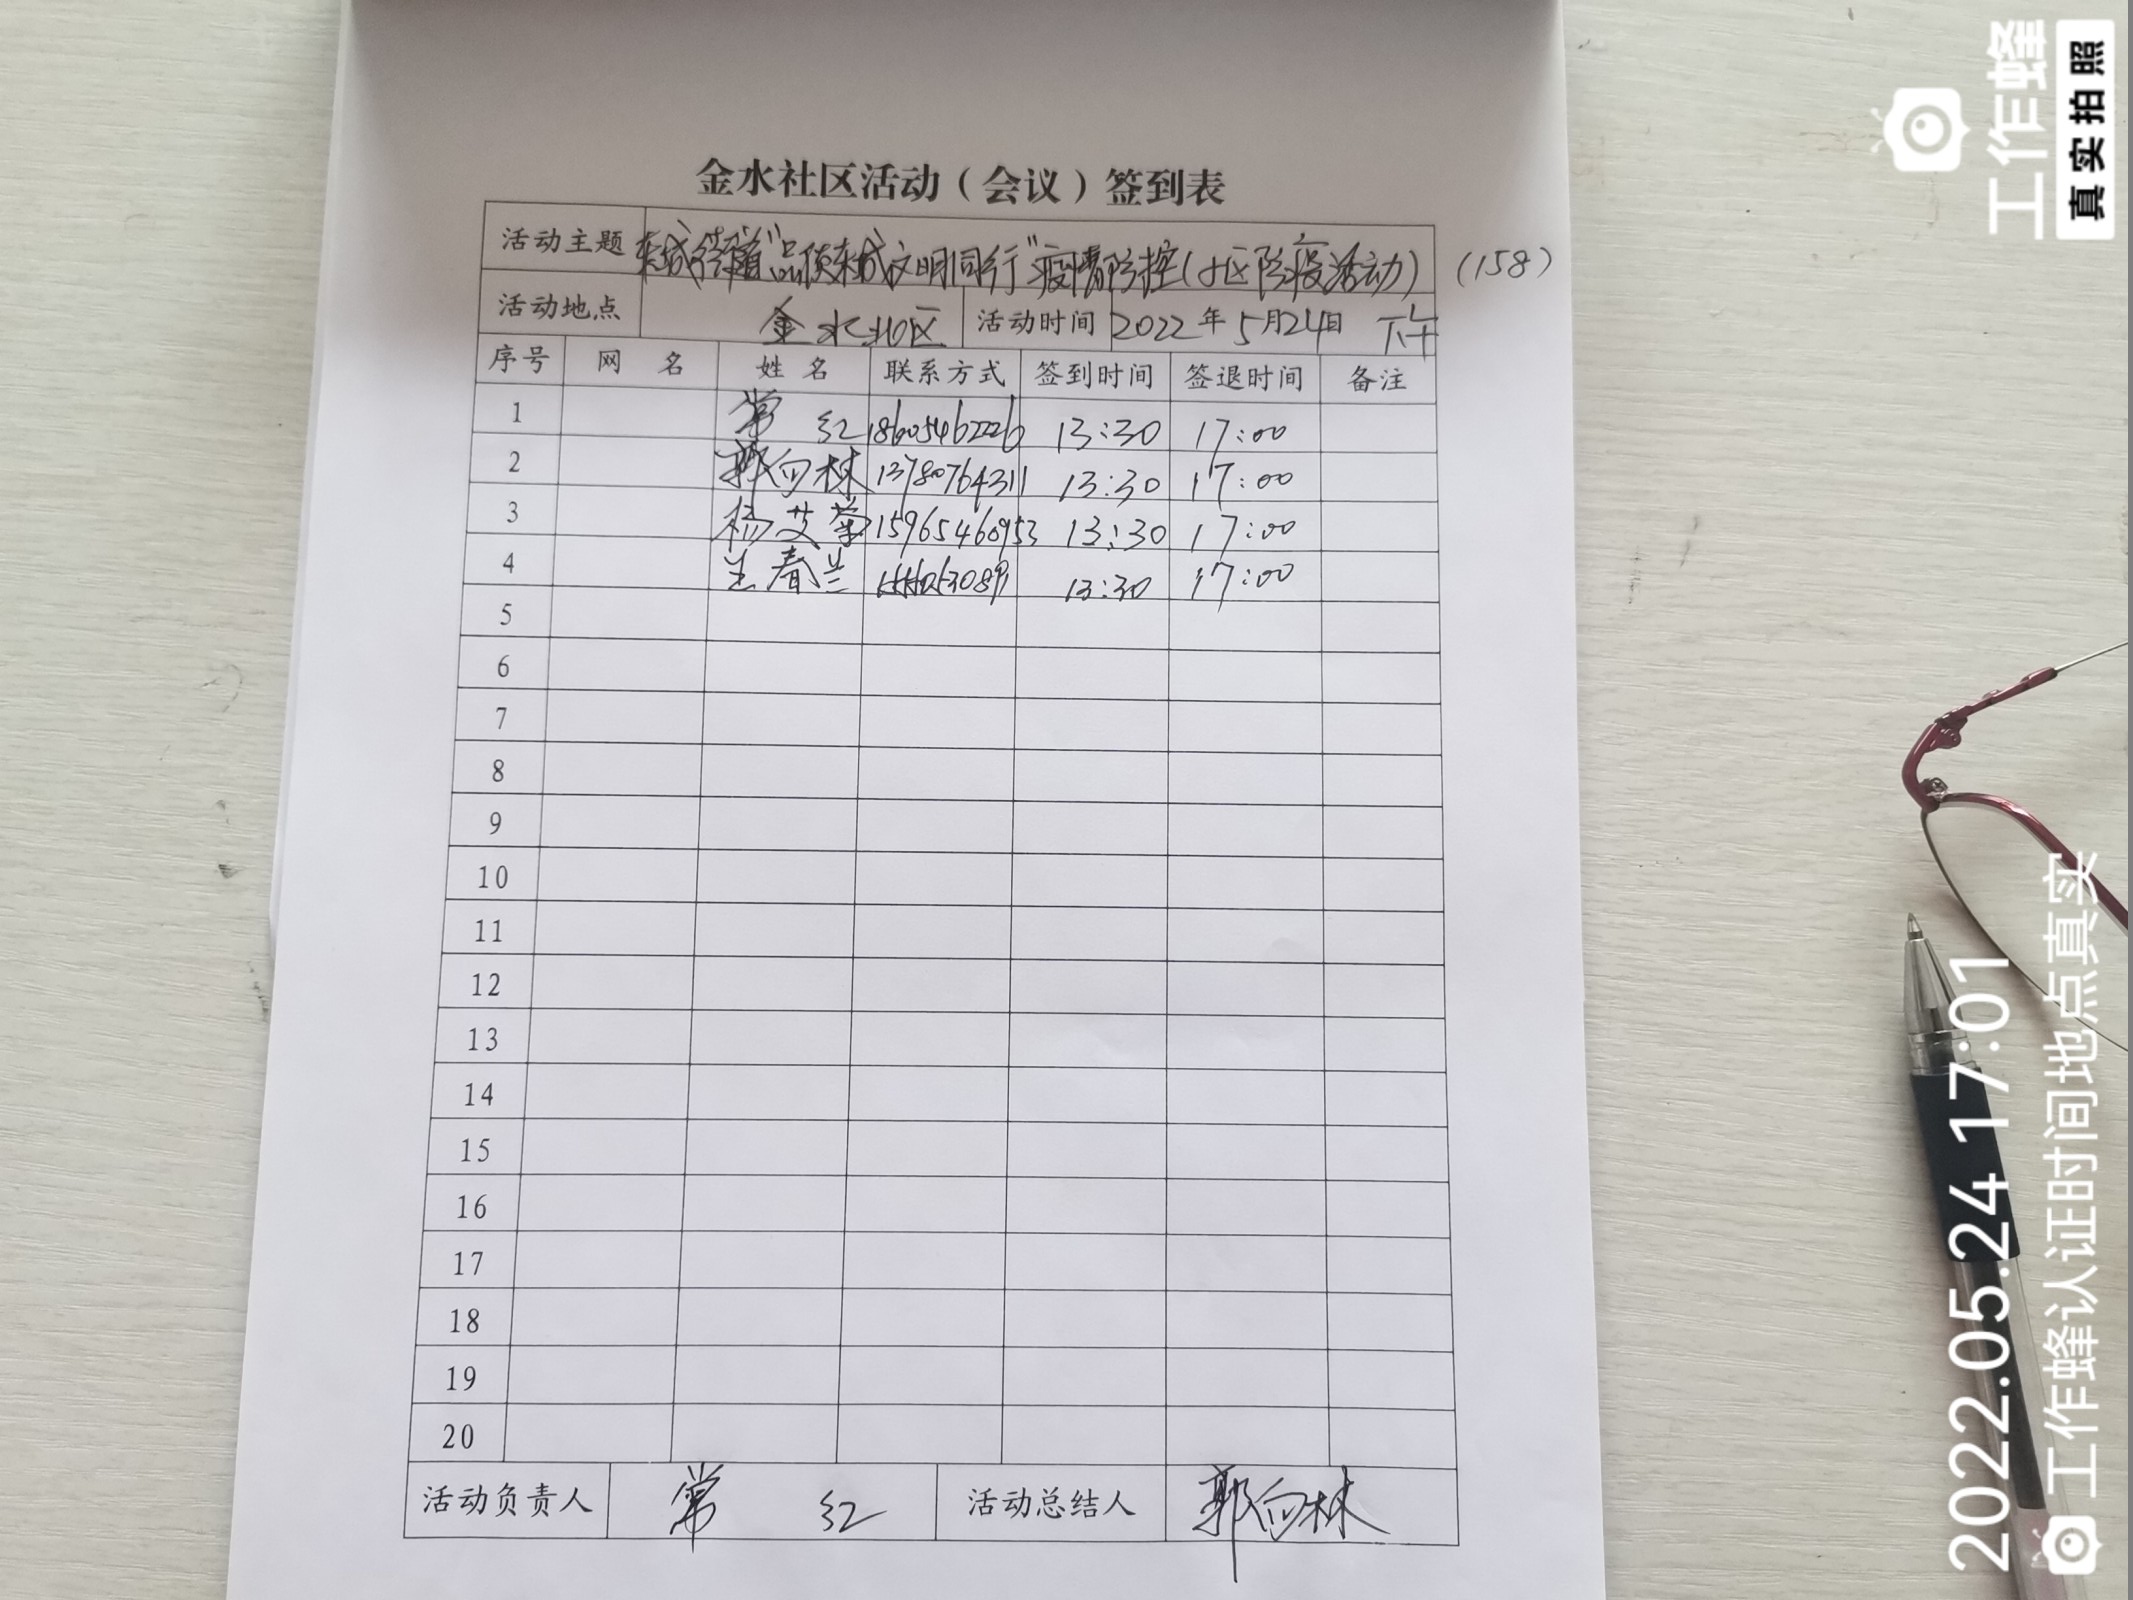 金水社区活动（会议）签到表
活动主题 东城街道"品质东城文明同行"疫情防控(小区防疫活动) (158)
活动地点 金水北区 活动时间 2022年5月24日 下午
序号 网 名 姓 名 联系方式 签到时间 签退时间 备注
1 常 红 18605462226 13:30 17:00
2 郭向林 13780764311 13:30 17:00
3 杨艾荣 15965460953 13:30 17:00
4 春兰 13:30 17:00
5
6
7
8
9
10
11
12
13
14
15
16
17
18
19
20
活动负责人 常 红 活动总结人 郭向林
工作蜂
真实拍照
2022.05.24 17:01
工作蜂认证时间地点真实